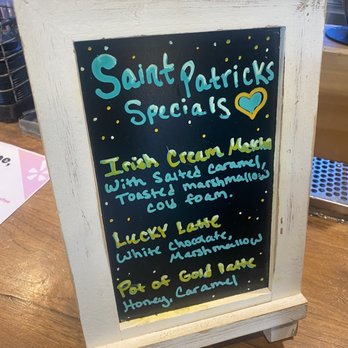 Saint Patricks
Specials
Irish Cream Matcha
With Salted caramel,
Toasted marshmallow
cow foam.
Lucky Latte
White chocolate,
Marshmallow
Pot of Gold latte
Honey, Caramel